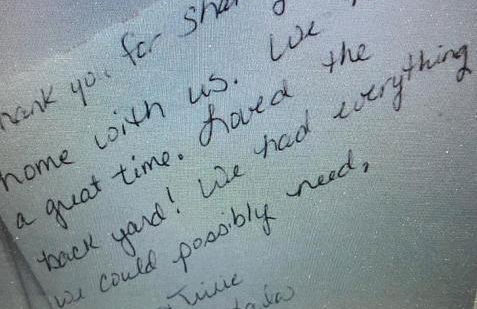 you for
home with us. We
a great time. Loved the
back yard! We had everything
we could possibly need,